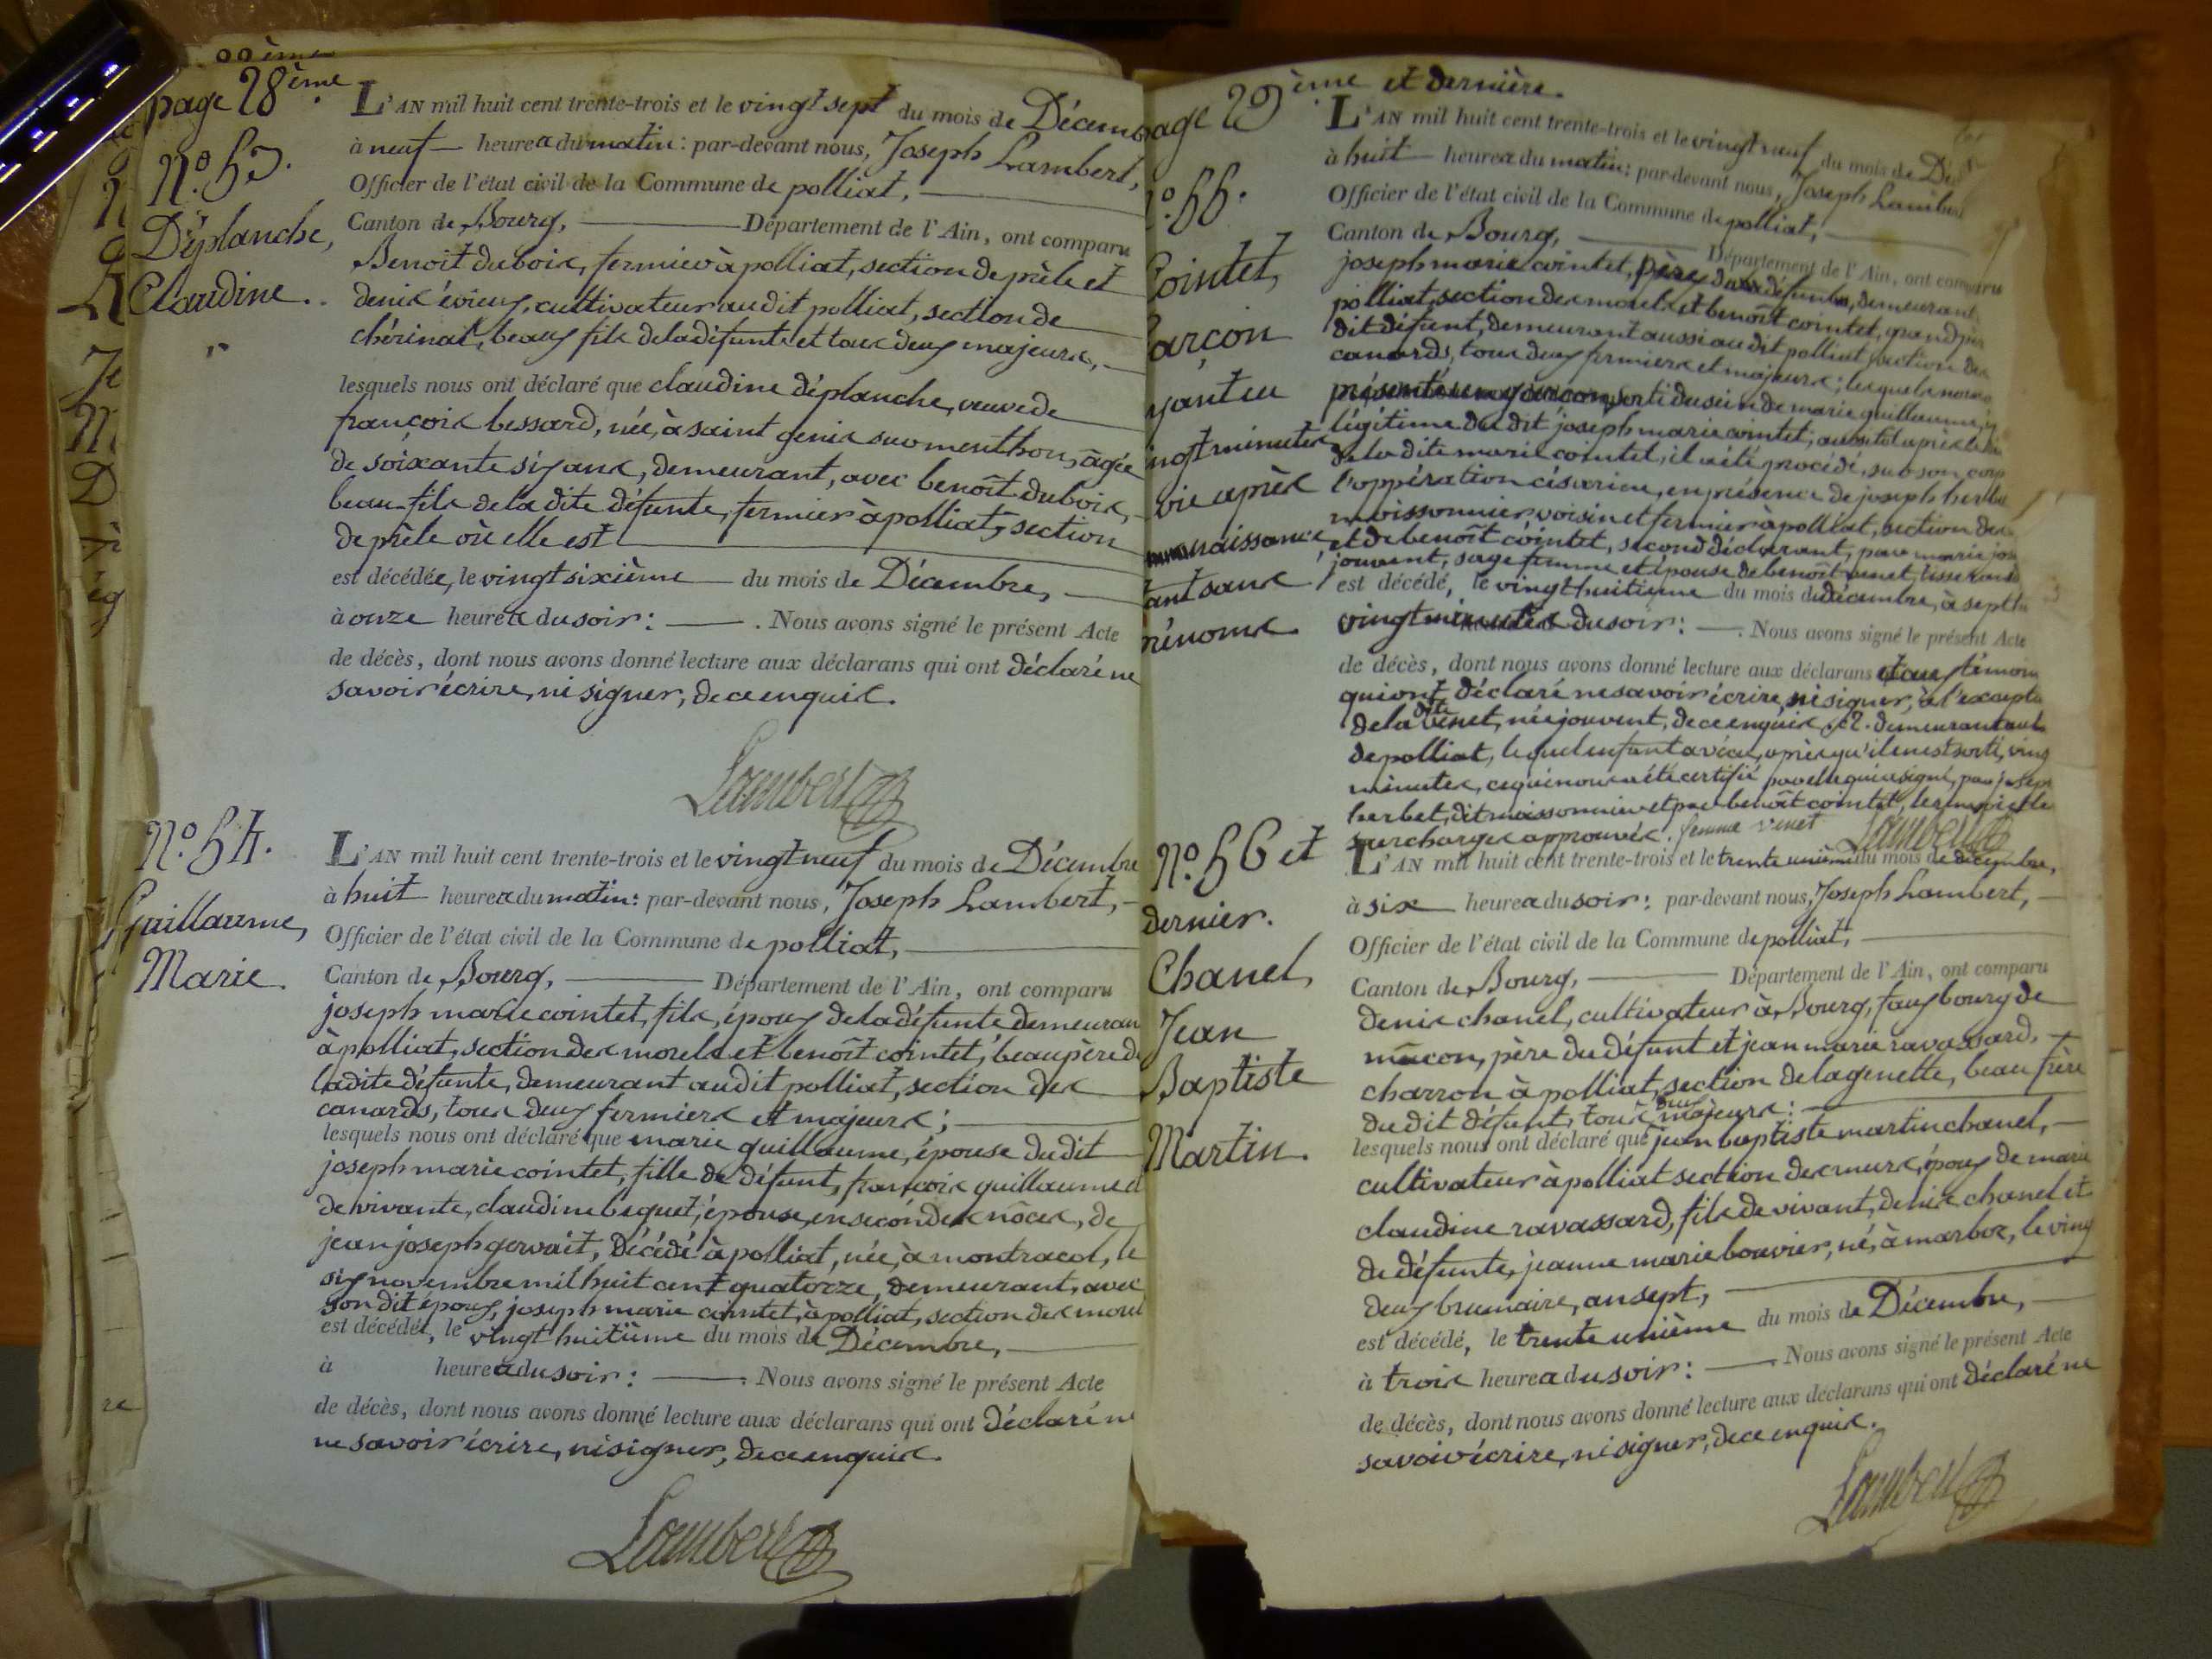 page 28ème
N.º 53.
Déplanche,
Claudine.
L'AN mil huit cent trente-trois et le vingt sept du mois de Décemb
à neuf heures du matin: par-devant nous, Joseph Lambert,
Officier de l'état civil de la Commune de polliat,
Canton de Bourg, Département de l'Ain, ont comparu
Benoit dubois, fermier à polliat, section de prèle et
denis évieux, cultivateur au dit polliat, section de
chérinal, beaux fils de la défunte et tous deux majeurs,
lesquels nous ont déclaré que claudine déplanche, veuve de
françois bessard, née, à saint genis sur menthon, âgée
de soixante six ans, demeurant, avec benoît dubois,
beau-fils de la dite défunte, fermier à polliat, section
de prèle où elle est
est décédée, le vingt sixième du mois de Décembre,
à onze heures du soir: . Nous avons signé le présent Acte
de décès, dont nous avons donné lecture aux déclarans qui ont déclaré ne
savoir écrire, ni signer, de ce enquis.
Lambert
N.º 54.
Guillaume,
Marie.
L'AN mil huit cent trente-trois et le vingt neuf du mois de Décembre
à huit heures du matin: par-devant nous, Joseph Lambert,
Officier de l'état civil de la Commune de polliat,
Canton de Bourg, Département de l'Ain, ont comparu
joseph marie cointet, fils, époux de la défunte demeuran
à polliat, section des morels et benoît cointet, beau père d
la dite défunte, demeurant au dit polliat, section des
canards, tous deux fermiers et majeurs;
lesquels nous ont déclaré que marie guillaume, épouse du dit
joseph marie cointet, fille de défunt, françois guillaume
de vivante, claudine bequet, épouse, en secondes nôces, de
jean joseph gervait, décédé à polliat, née, à montracol, le
six novembre mil huit cent quatorze, demeurant, avec
son dit époux, joseph marie cointet, à polliat, section des morel
est décédée, le vingt huitième du mois de Décembre,
à heures du soir: . Nous avons signé le présent Acte
de décès, dont nous avons donné lecture aux déclarans qui ont déclaré n
ne savoir écrire, ni signer, de ce enquis.
Lambert
age 29ème et dernière.
º. 55.
Cointet,
arçon
yant eu
ingt minutes
vie après
naissance,
tant sans
rénoms.
L'AN mil huit cent trente-trois et le vingt neuf du mois de Dé
à huit heures du matin: par-devant nous, Joseph Lamber
Officier de l'état civil de la Commune de polliat,
Canton de Bourg, Département de l'Ain, ont comparu
joseph marie cointet, père du défunt, demeurant,
polliat, section des morels et benoît cointet, grand pèr
dit défunt, demeurant aussi au dit polliat section des
canards, tous deux fermiers et majeurs; lesquels nous
sorti du sein de marie guillaume,
légitime du dit joseph marie cointet; aussitôt après le
de la dite marie cointet, il a été procédé, sur son corp
l'oppération césarienne, en présence de joseph herbe
moissonnier, voisin et fermier à polliat, section des
et de benoît cointet, second déclarant, par marie jos
jouvent, sage femme et épouse de benoît venet, tisserand
est décédé, le vingt huitième du mois de décembre, à sept h
vingt minutes du soir: . Nous avons signé le présent Acte
de décès, dont nous avons donné lecture aux déclarans et aux témoins
qui ont déclaré ne savoir écrire, ni signer, à l'excepti
de la dite venet, née jouvent, de ce enquis. demeurant au
de polliat, lequel enfant a vécu, après qu'il en est sorti, ving
minutes, ce qui nous a été certifié par elle qui a signé, par josep
herbet, dit moissonnier et par benoît cointet,
surcharges approuvés. femme venet Lambert
N.º 56 et
dernier.
Chanel,
Jean
Baptiste
Martin.
L'AN mil huit cent trente-trois et le trente unième du mois de décembre,
à six heures du soir: par-devant nous, Joseph Lambert,
Officier de l'état civil de la Commune de polliat,
Canton de Bourg, Département de l'Ain, ont comparu
denis chanel, cultivateur à Bourg, faux bourg de
mâcon, père du défunt et jean marie ravassard,
charron à polliat, section de la genette, beau frère
du dit défunt, tous deux majeurs:
lesquels nous ont déclaré que jean baptiste martin chanel,
cultivateur à polliat section des murs, époux de marie
claudine ravassard, fils de vivant, denis chanel et
de défunte, jeanne marie bouvier, né, à marboz, le ving
deux brumaire, an sept,
est décédé, le trente unième du mois de Décembre,
à trois heures du soir: . Nous avons signé le présent Acte
de décès, dont nous avons donné lecture aux déclarans qui ont déclaré ne
savoir écrire, ni signer, de ce enquis.
Lambert